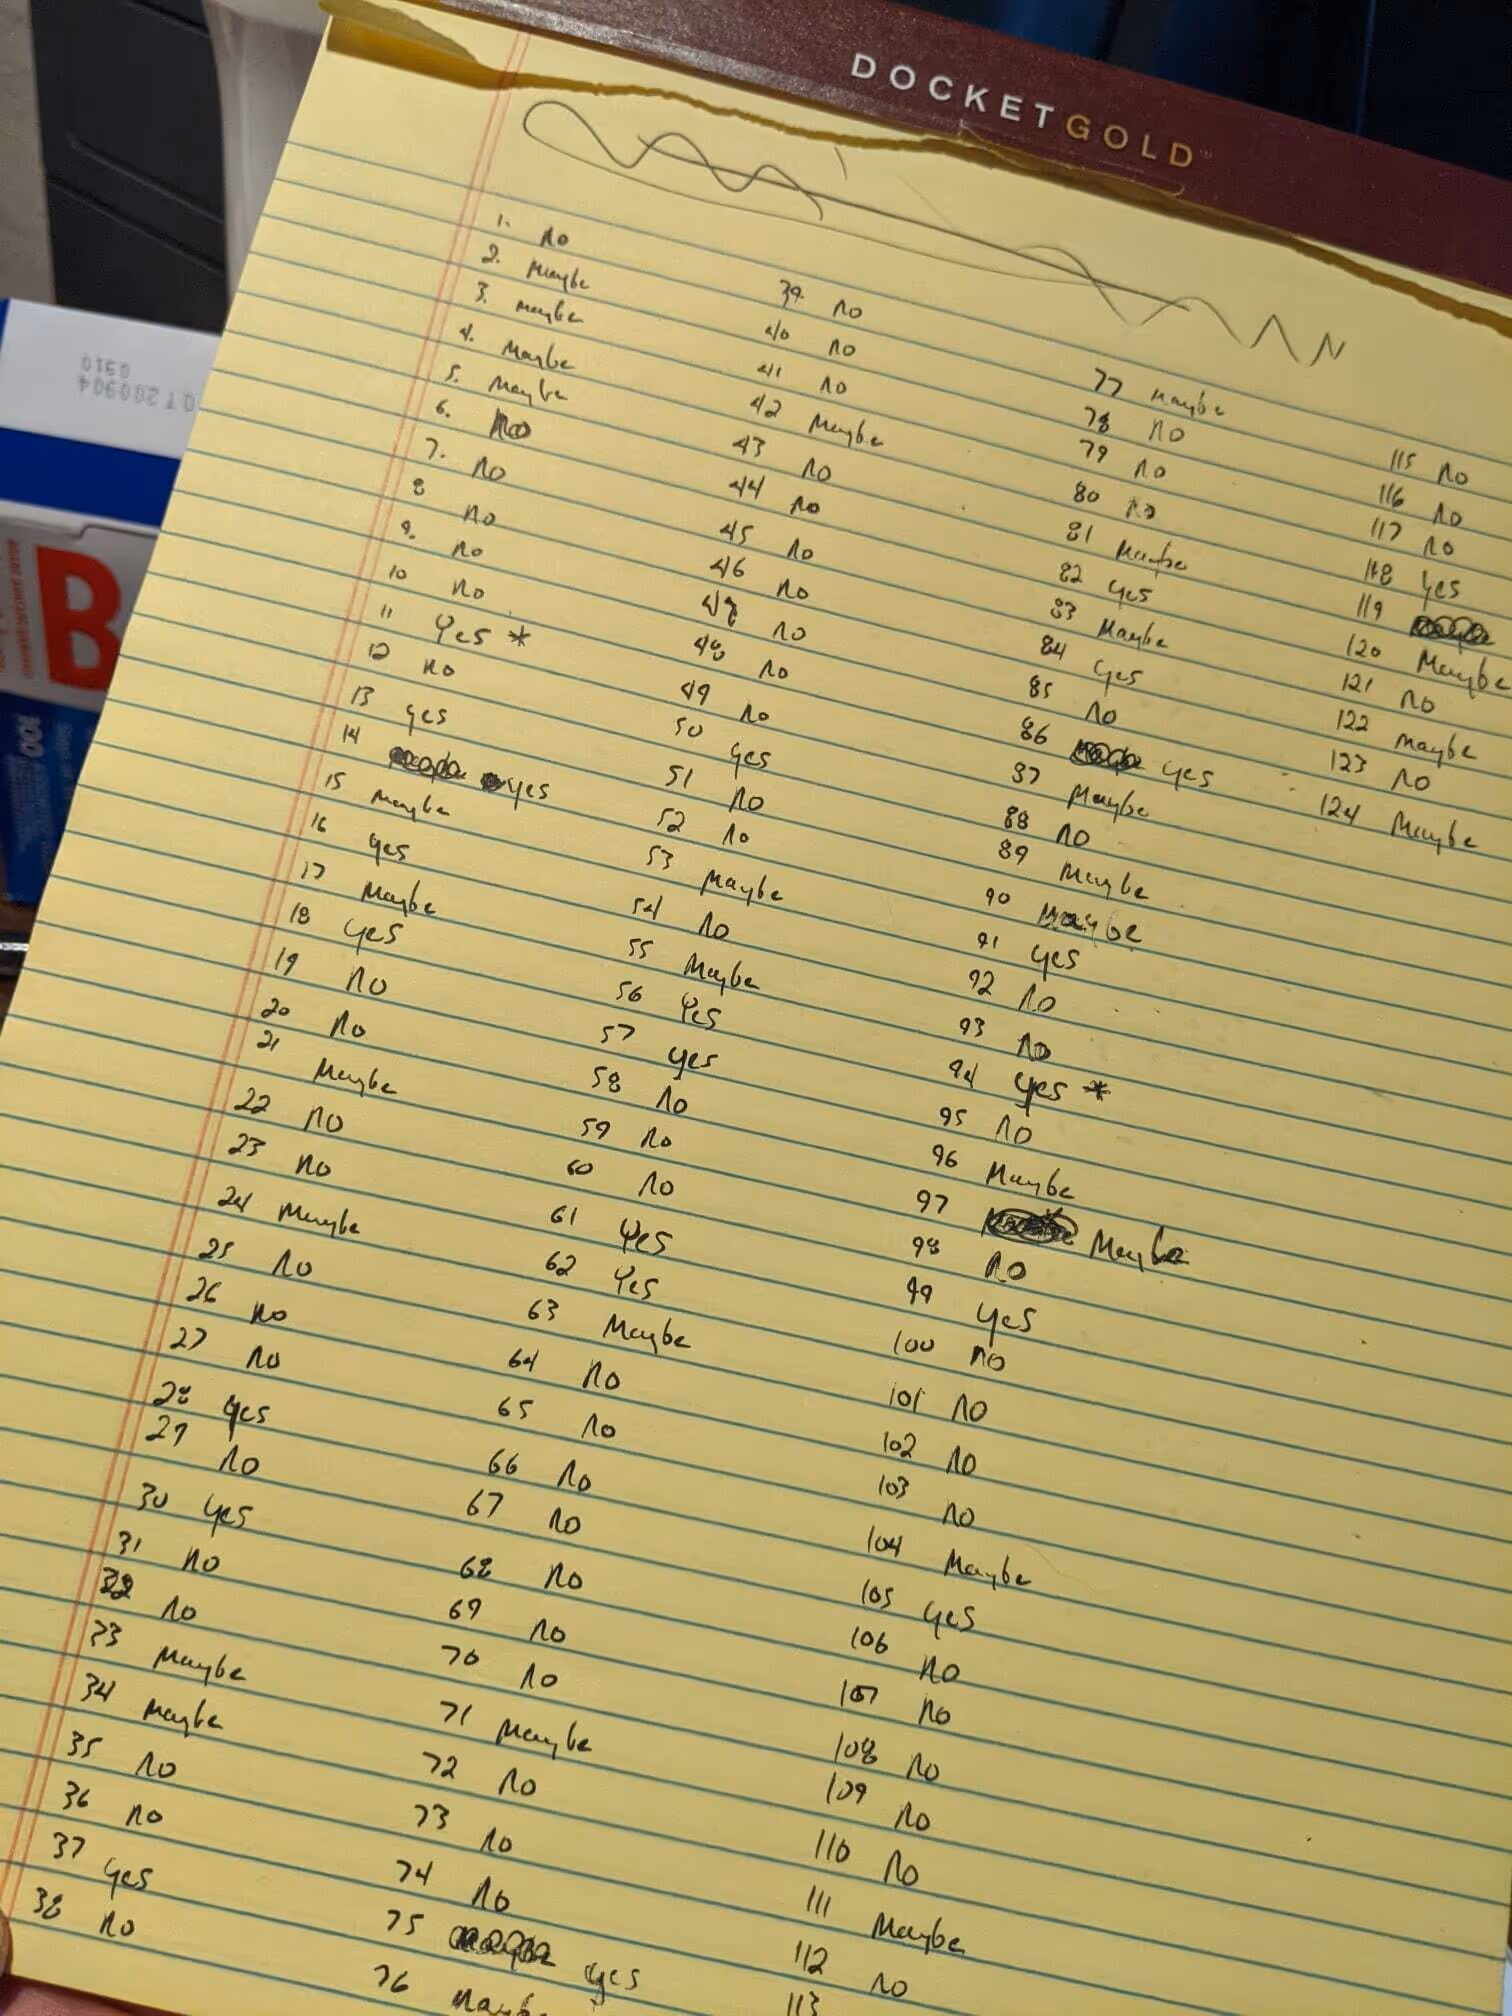 DOCKETGOLD
1. no
2. Maybe
3. maybe
4. Maybe
5. Maybe
6. No
7. no
8 no
9. no
10 no
11 Yes *
12 no
13 yes
14 yes
15 Maybe
16 yes
17 Maybe
18 yes
19 no
20 no
21 Maybe
22 no
23 no
24 Maybe
25 no
26 no
27 no
28 yes
29 no
30 yes
31 no
32 no
33 Maybe
34 Maybe
35 no
36 no
37 yes
38 no
39. no
40 no
41 no
42 Maybe
43 no
44 no
45 no
46 no
no
48 no
49 no
50 yes
51 no
52 no
53 Maybe
54 no
55 Maybe
56 Yes
57 yes
58 no
59 no
60 no
61 Yes
62 Yes
63 Maybe
64 no
65 no
66 no
67 no
68 no
69 no
70 no
71 Maybe
72 no
73 no
74 no
75 yes
76 Maybe
77 Maybe
78 no
79 no
80 no
81 Maybe
82 yes
83 Maybe
84 yes
85 no
86 yes
87 Maybe
88 no
89 Maybe
90 Maybe
91 yes
92 no
93 no
94 yes *
95 no
96 Maybe
97 Maybe
98 no
99 yes
100 no
101 no
102 no
103 no
104 Maybe
105 yes
106 no
107 no
108 no
109 no
110 no
111 Maybe
112 no
113
115 no
116 no
117 no
118 yes
119
120 Maybe
121 no
122 Maybe
123 no
124 Maybe
0310
0T200904
B
300